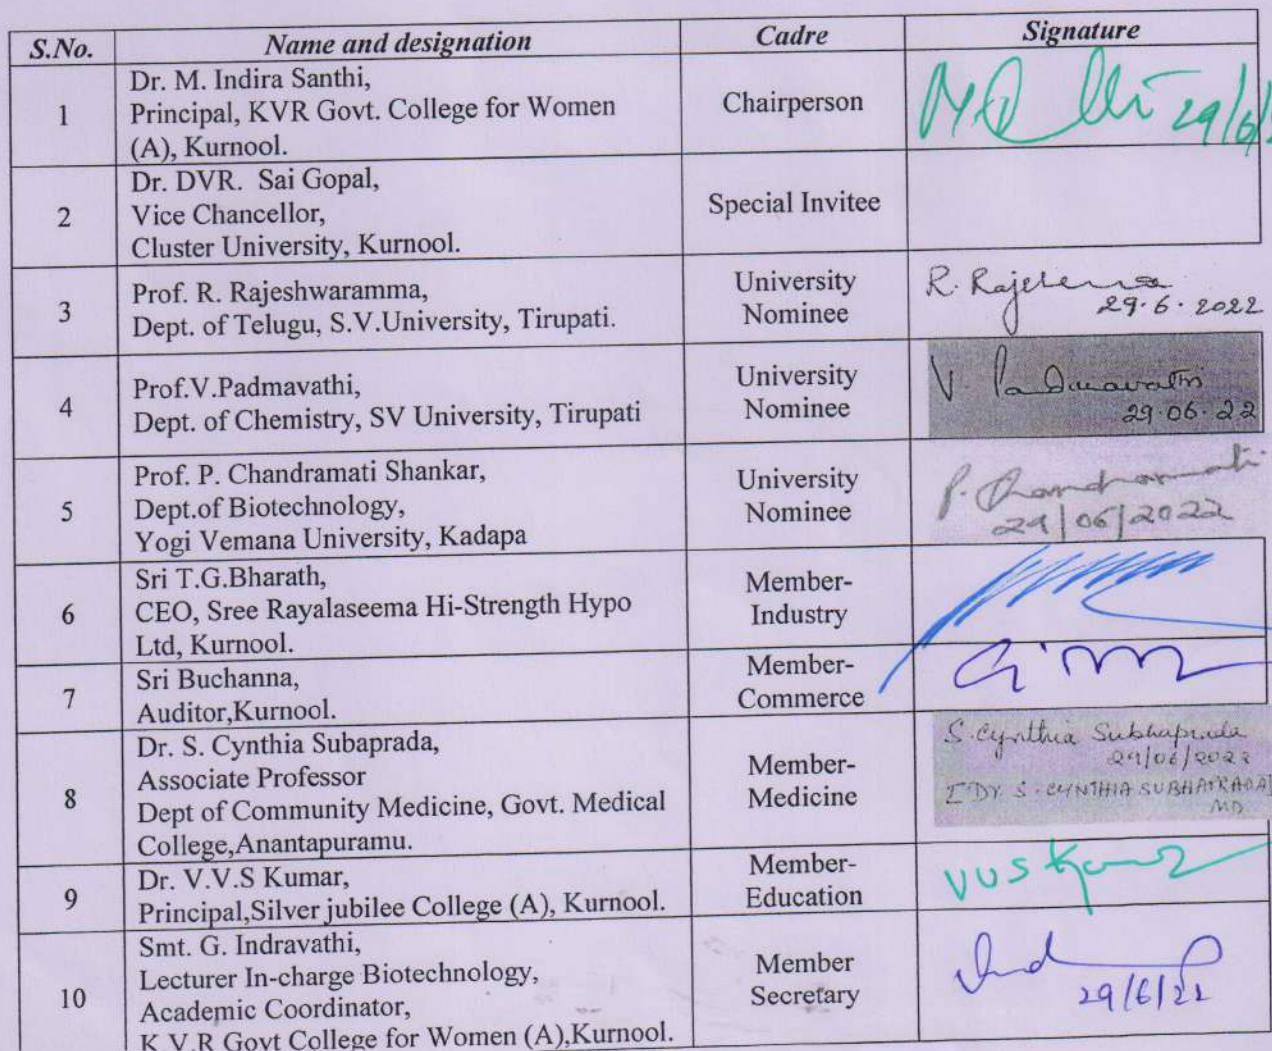 S.No. Name and designation Cadre Signature
1
Dr. M. Indira Santhi,
Principal, KVR Govt. College for Women
(A), Kurnool.
Chairperson
29/6/
2
Dr. DVR. Sai Gopal,
Vice Chancellor,
Cluster University, Kurnool.
Special Invitee
3
Prof. R. Rajeshwaramma,
Dept. of Telugu, S.V.University, Tirupati.
University
Nominee
R.
29.6.2022
4
Prof.V.Padmavathi,
Dept. of Chemistry, SV University, Tirupati
University
Nominee
V. Padmavathi
29.06.22
5
Prof. P. Chandramati Shankar,
Dept.of Biotechnology,
Yogi Vemana University, Kadapa
University
Nominee
P. Chandramati
29/06/2022
6
Sri T.G.Bharath,
CEO, Sree Rayalaseema Hi-Strength Hypo
Ltd, Kurnool.
Member-
Industry
7
Sri Buchanna,
Auditor,Kurnool.
Member-
Commerce
8
Dr. S. Cynthia Subaprada,
Associate Professor
Dept of Community Medicine, Govt. Medical
College,Anantapuramu.
Member-
Medicine
S. Cynthia Subhaprada
29/06/2022
[Dr. S. CYNTHIA SUBHAPRADA]
MD
9
Dr. V.V.S Kumar,
Principal,Silver jubilee College (A), Kurnool.
Member-
Education
VVS Kumar
10
Smt. G. Indravathi,
Lecturer In-charge Biotechnology,
Academic Coordinator,
K.V.R Govt College for Women (A),Kurnool.
Member
Secretary
29/6/22